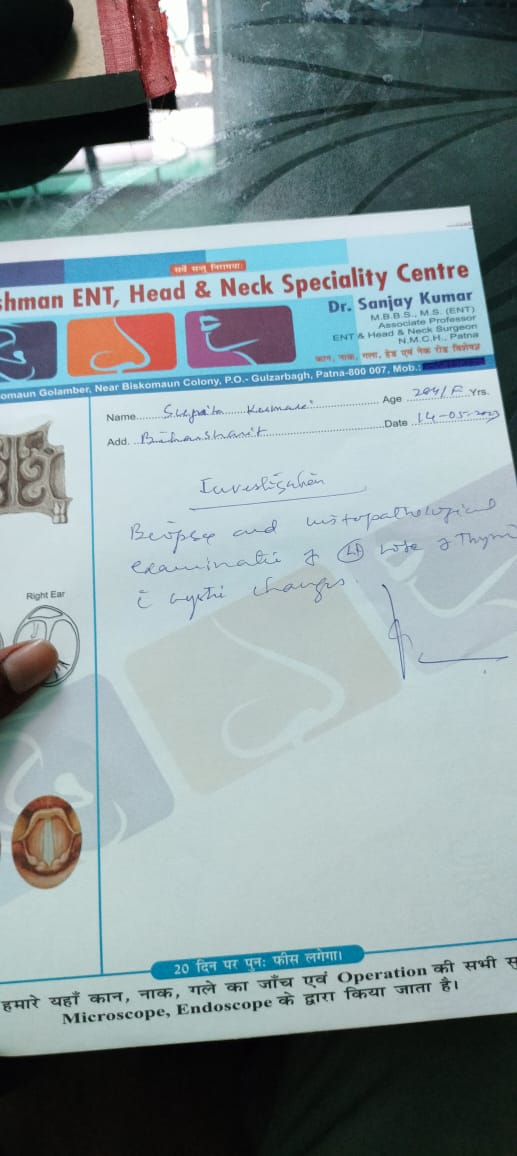 सर्वे सन्तु निरामयाः
shman ENT, Head & Neck Speciality Centre
Dr. Sanjay Kumar
M.B.B.S., M.S. (ENT)
Associate Professor
ENT & Head & Neck Surgeon
N.M.C.H., Patna
कान, नाक, गला, हेड एवं नेक रोग विशेषज्ञ
omaun Golamber, Near Biskomaun Colony, P.O.- Gulzarbagh, Patna-800 007, Mob.:
Name Kumari Age Yrs.
Add. Biharsharif Date 14-05-2023
Investigation
Biopsy and histopathological
examination of (Lt) lobe of
c cystic changes.
Right Ear
20 दिन पर पुनः फीस लगेगा।
हमारे यहाँ कान, नाक, गले का जाँच एवं Operation की सभी सु
Microscope, Endoscope के द्वारा किया जाता है।